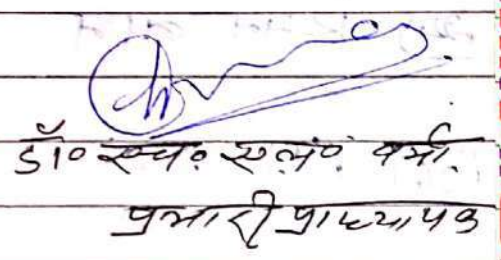 डॉ० एच० एल० वर्मा.
प्रभारी प्राध्यापक